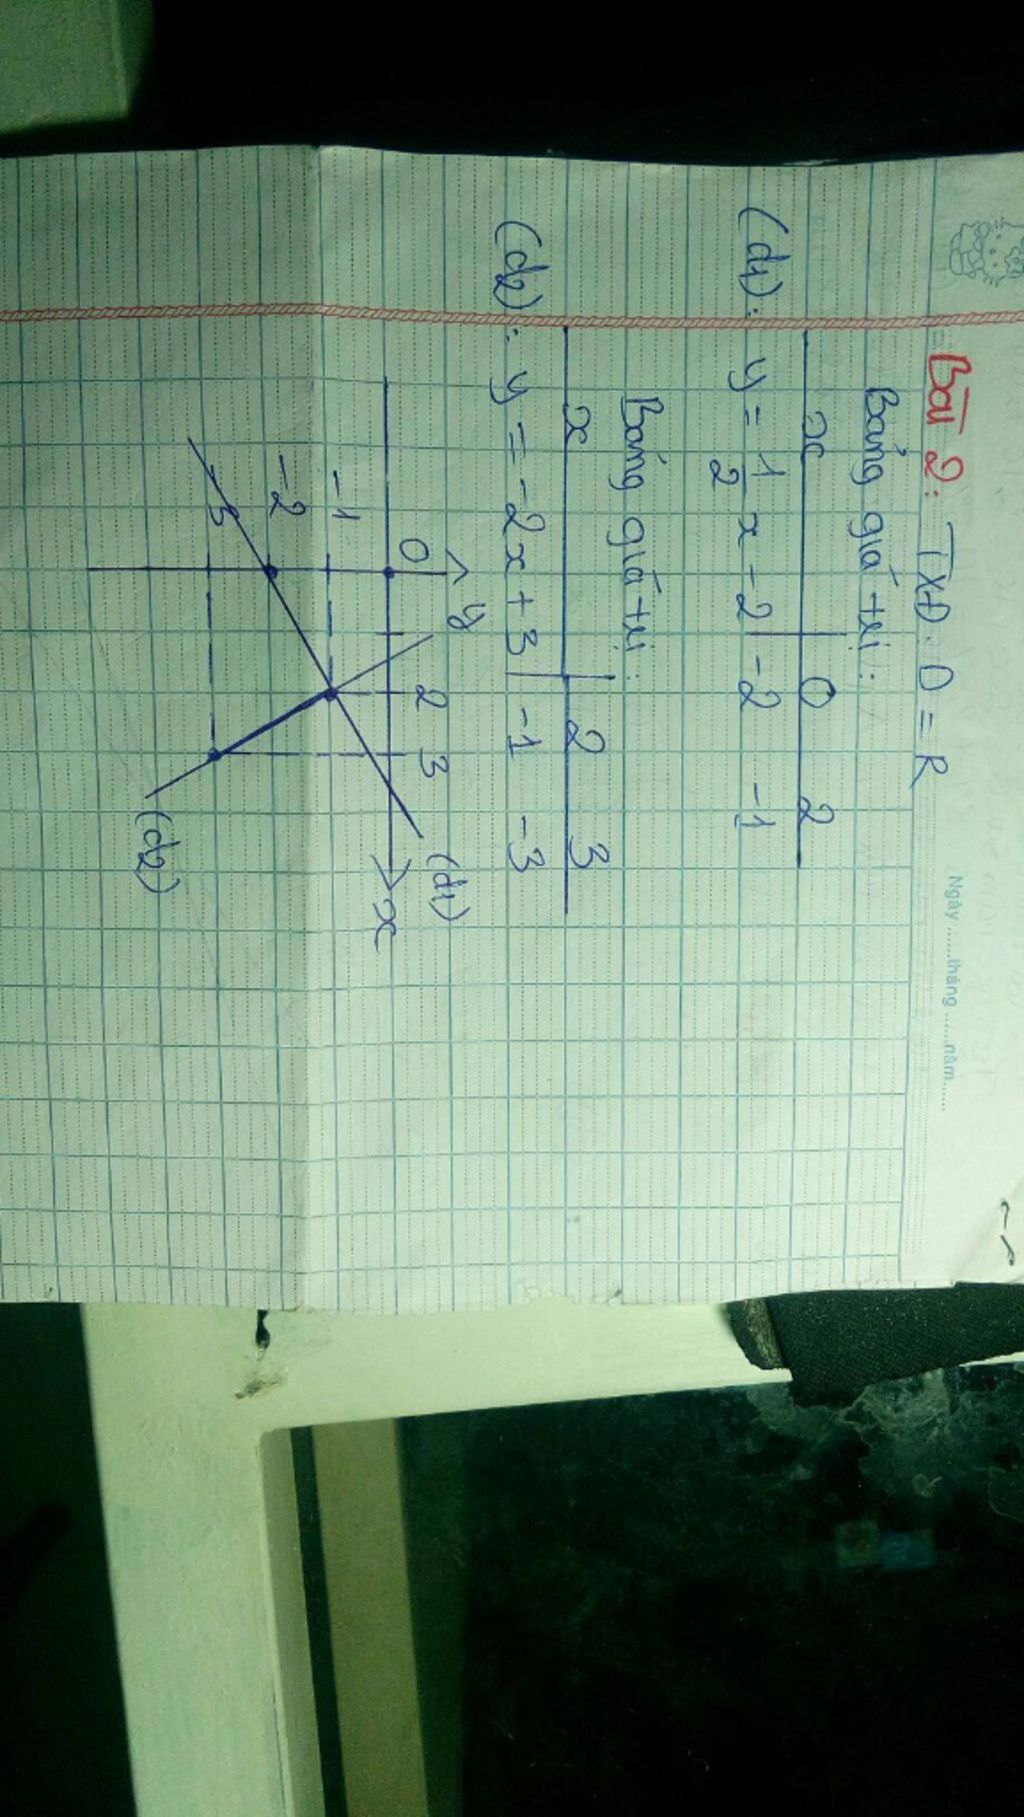 Ngày ......tháng ......năm......
Bài 2: TXĐ: D = R
Bảng giá trị:
x 0 2
(d1): y = 1/2 x - 2 -2 -1
Bảng giá trị:
x 2 3
(d2): y = -2x + 3 -1 -3
y
(d1)
0 2 3
x
-1
-2
(d2)